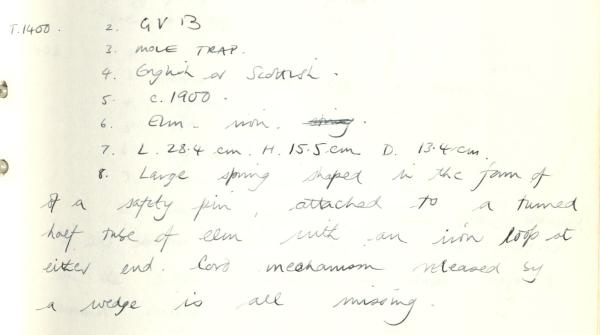 T.1400. 2. GV 13
3. MOLE TRAP.
4. English or Scottish.
5. c.1900.
6. Elm - iron. string.
7. L. 28.4 cm. H. 15.5 cm D. 13.4 cm.
8. Large spring shaped in the form of
of a safety pin, attached to a turned
half tube of elm with an iron loop at
either end. Cord mechanism released by
a wedge is all missing.